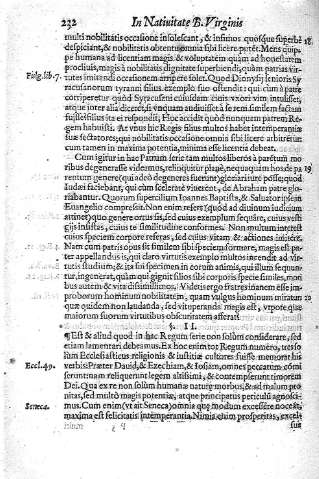 232 In Natiuitate B. Virginis
multi nobilitatis occasione insolescant, & infimos quosque superbè 18
despiciant, & nobilitatis obtentu omnia sibi licere putét. Mens quip-
pe humana ad licentiam magis & voluptatem quàm ad honestatem
procliuis, magis à nobilitatis dignitate superbiendi, quàm patrias vir-
Fulg. lib. 7. tutes imitandi occasionem arripere solet. Quod Dionysij senioris Sy-
racusanorum tyranni filius exemplo suo ostendit: qui cùm à patre
corriperetur quòd Syracusani cuiusdam ciuis vxori vim intulisset,
atque inter alia diceret,
fuisse: filius ita ei respondit, Hoc accidit quòd nunquam patrem Re-
gem habuisti. At vnus hic Regis filius multos habet intemperantiæ
suæ sectatores; qui nobilitatis occasione omnia sibi licere arbitrentur
cum tamen in maxima potentia, minima esse licentia debeat.
Cum igitur in hac Patrum serie tam multos liberos à parétum mo
ribus degenerasse videmus, relinquitur planè, nequaquam hos de pa 19
rentum genere (qui adeò degeneres fuerint) gloriari iure posse; quod
Iudæi faciebant, qui cùm sceleratè viuerent, de Abraham patre glo-
riabantur. Quorum superciliũ Ioannes Baptista, & Saluator ipse in
Euangelio compressit. Non enim refert (quod ad diuinum iudiciũ
attinet) quo genere ortus sis, sed cuius exemplum sequare, cuius vesti
gijs insistas, cuius te similitudine conformes. Non multum interest
cuius speciem corpore referas, sed cuius vitam & actiones imiteris.
Nam cum patris opus sit similem sibi specie formare, magis est pa-
ter appellandus is, qui claro virtutis exemplo multos incendit ad vir-
tutis studium; & ita sui specimen in eorum animis, qui illum sequun-
tur, ingenerat, quàm qui gignit filios sibi corporis specie similes, mori
bus autem & vita dissimillimos. Videris ergo fratres inanem esse im-
proborum hominum nobilitatem, quam vulgus hominum miratur 20
quæ quidem non laudanda, sed vituperanda magis est, vtpote quæ
maiorum suorum virtutibus obscuritatem afferat.
§. II.
¶ Est & aliud quod in hac Regum serie non solùm considerare, sed
etiam lamentari debemus. Ex hoc enim tot Regum numero, tres so-
lùm Ecclesiasticus religionis & iustitiæ cultores fuisse memorat his
Eccl. 49. verbis: Præter Dauid, & Ezechiam, & Iosiam, omnes peccatum cómi
serunt: nam reliquerunt legem altissimi, & contempserunt timorem
Dei. Qua ex re non solùm humanæ naturæ morbus, & ad malum pro
nitas, sed multò magis potentiæ, atque principatus periculũ agnosci-
Seneca. mus. Cum enim (vt ait Seneca) omnis quæ modum excessere noceát,
maxima est felicitatis intemperantia. Nimis enim prosperitas, excel-
sus